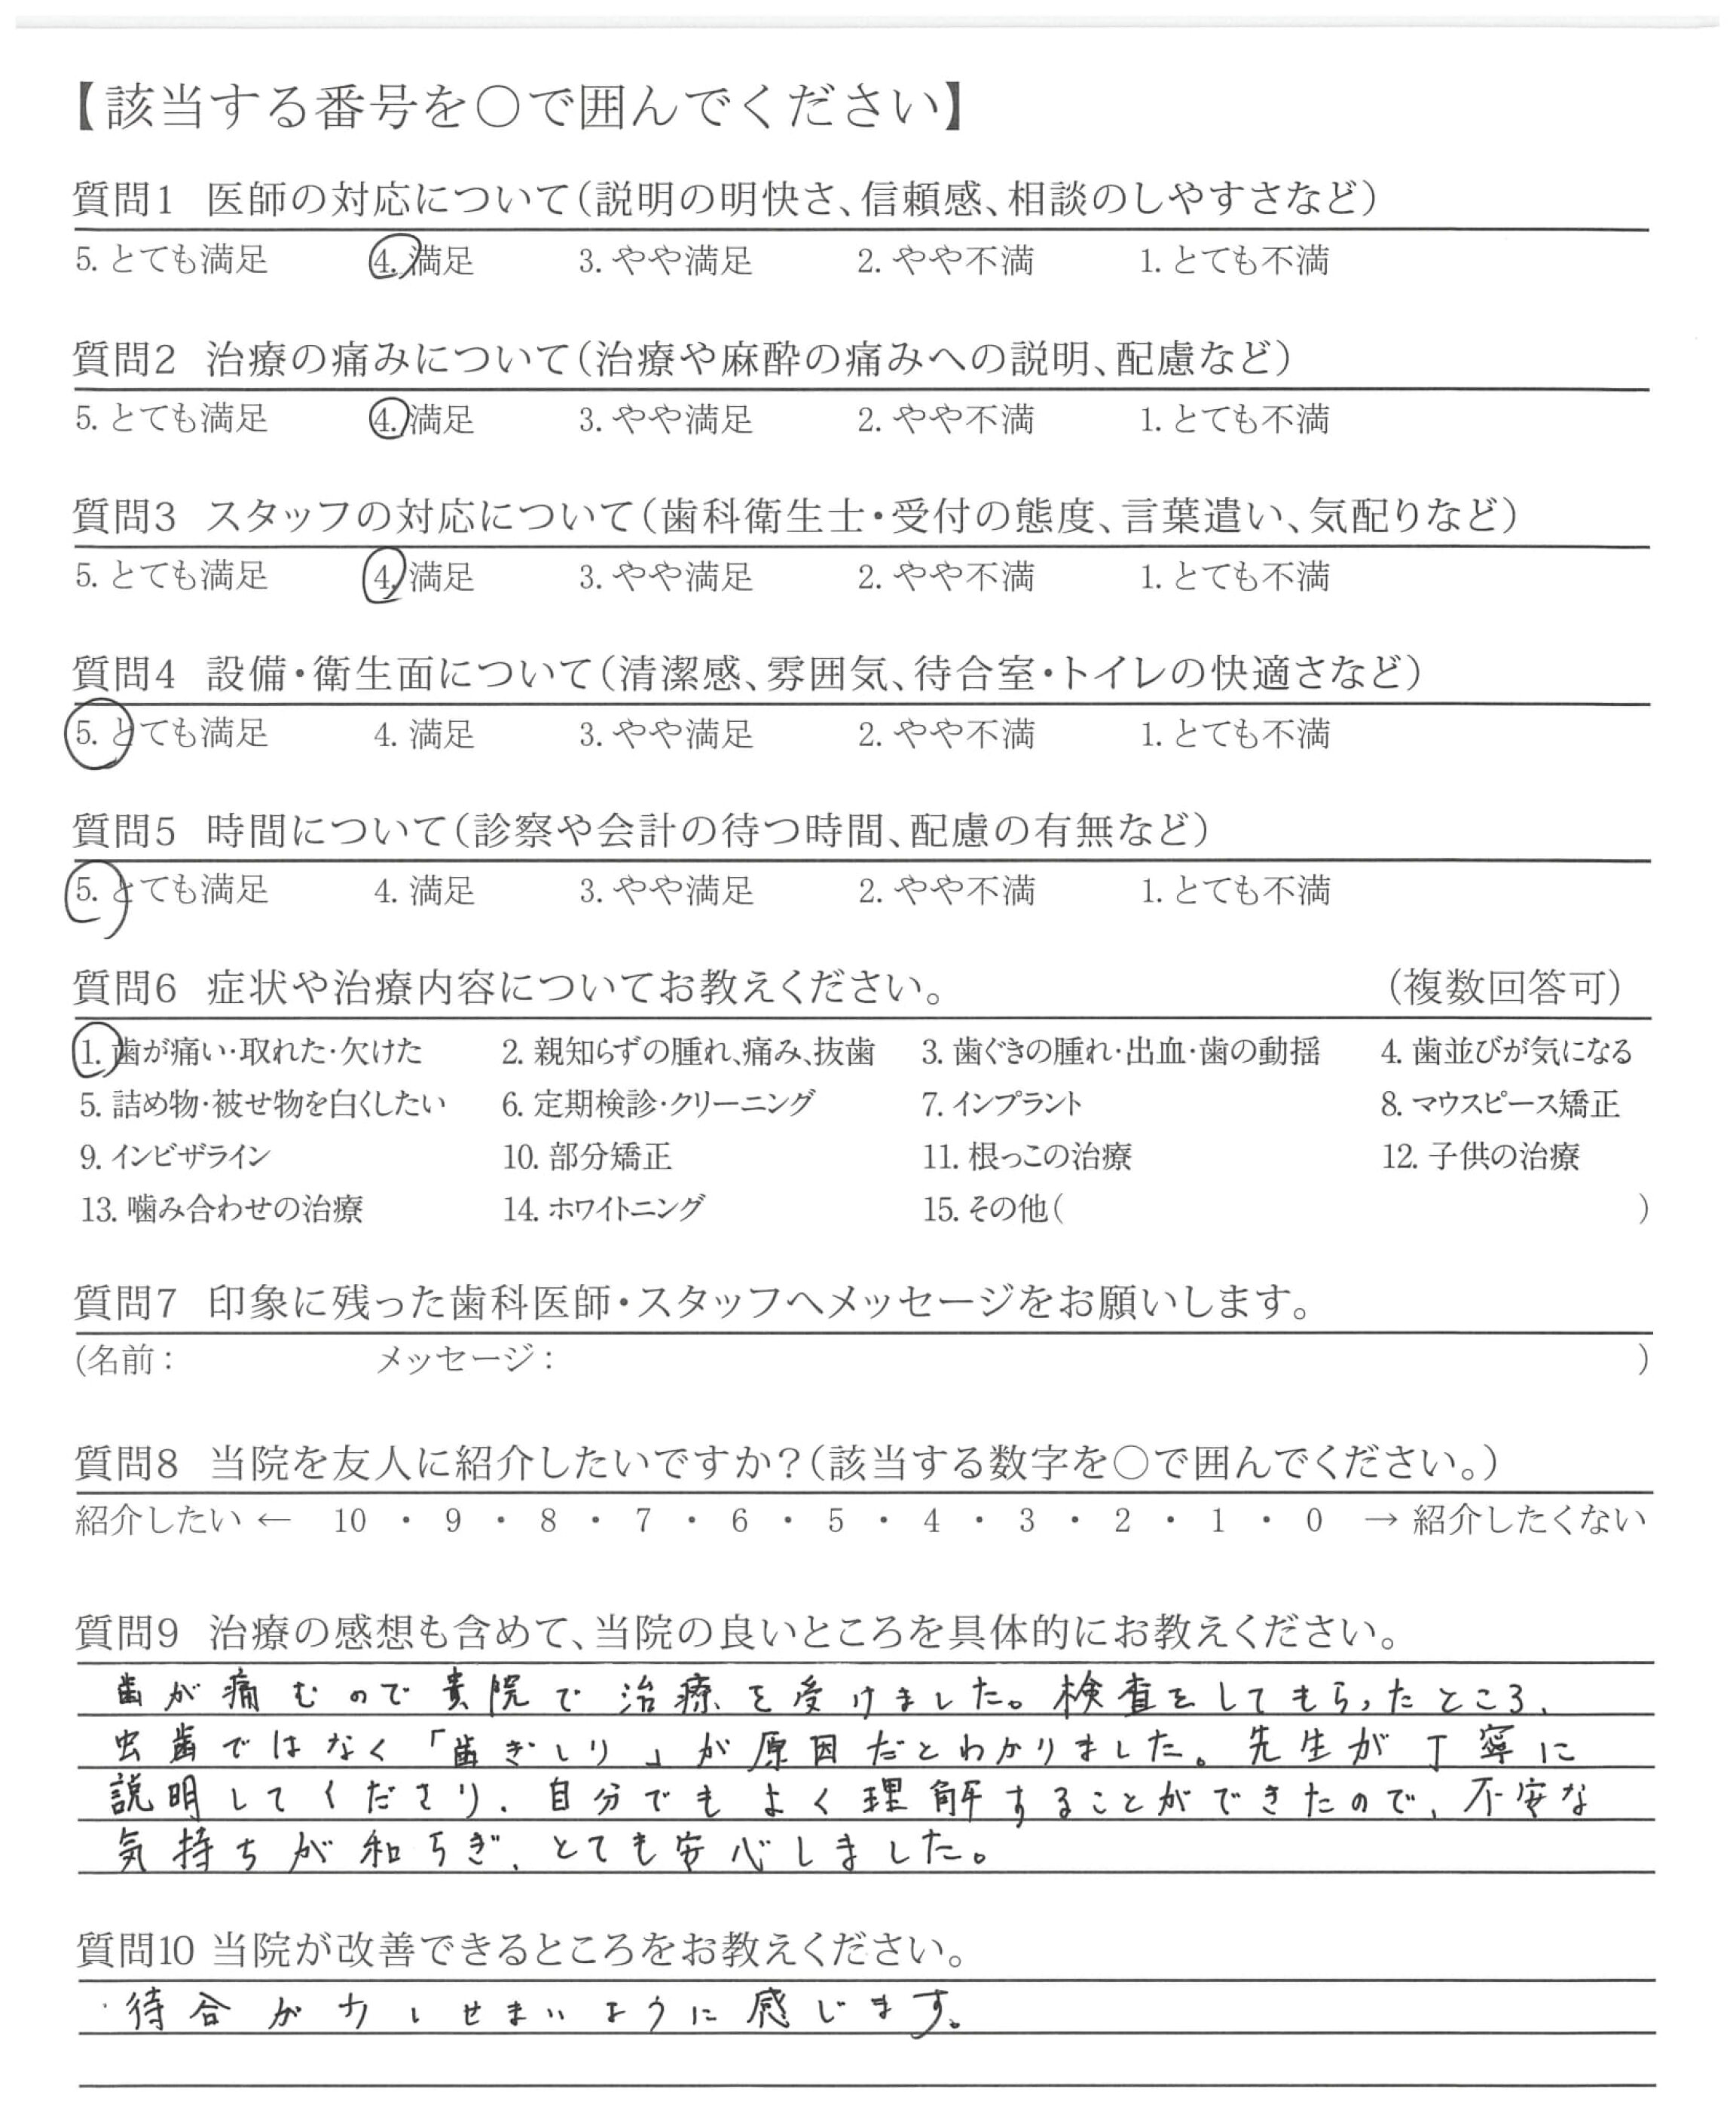 【該当する番号を○で囲んでください】
質問1 医師の対応について(説明の明快さ、信頼感、相談のしやすさなど)
5. とても満足 4. 満足 3. やや満足 2. やや不満 1. とても不満
質問2 治療の痛みについて(治療や麻酔の痛みへの説明、配慮など)
5. とても満足 4. 満足 3. やや満足 2. やや不満 1. とても不満
質問3 スタッフの対応について(歯科衛生士・受付の態度、言葉遣い、気配りなど)
5. とても満足 4. 満足 3. やや満足 2. やや不満 1. とても不満
質問4 設備・衛生面について(清潔感、雰囲気、待合室・トイレの快適さなど)
5. とても満足 4. 満足 3. やや満足 2. やや不満 1. とても不満
質問5 時間について(診察や会計の待つ時間、配慮の有無など)
5. とても満足 4. 満足 3. やや満足 2. やや不満 1. とても不満
質問6 症状や治療内容についてお教えください。 (複数回答可)
1. 歯が痛い・取れた・欠けた 2. 親知らずの腫れ、痛み、抜歯 3. 歯ぐきの腫れ・出血・歯の動揺 4. 歯並びが気になる
5. 詰め物・被せ物を白くしたい 6. 定期検診・クリーニング 7. インプラント 8. マウスピース矯正
9. インビザライン 10. 部分矯正 11. 根っこの治療 12. 子供の治療
13. 噛み合わせの治療 14. ホワイトニング 15. その他( )
質問7 印象に残った歯科医師・スタッフへメッセージをお願いします。
(名前： メッセージ： )
質問8 当院を友人に紹介したいですか？(該当する数字を○で囲んでください。)
紹介したい ← 10 ・ 9 ・ 8 ・ 7 ・ 6 ・ 5 ・ 4 ・ 3 ・ 2 ・ 1 ・ 0 → 紹介したくない
質問9 治療の感想も含めて、当院の良いところを具体的にお教えください。
歯が痛むので貴院で治療を受けました。検査をしてもらったところ、
虫歯ではなく「歯ぎしり」が原因だとわかりました。先生が丁寧に
説明してくださり、自分でもよく理解することができたので、不安な
気持ちが和らぎ、とても安心しました。
質問10 当院が改善できるところをお教えください。
・待合が少しせまいように感じます。